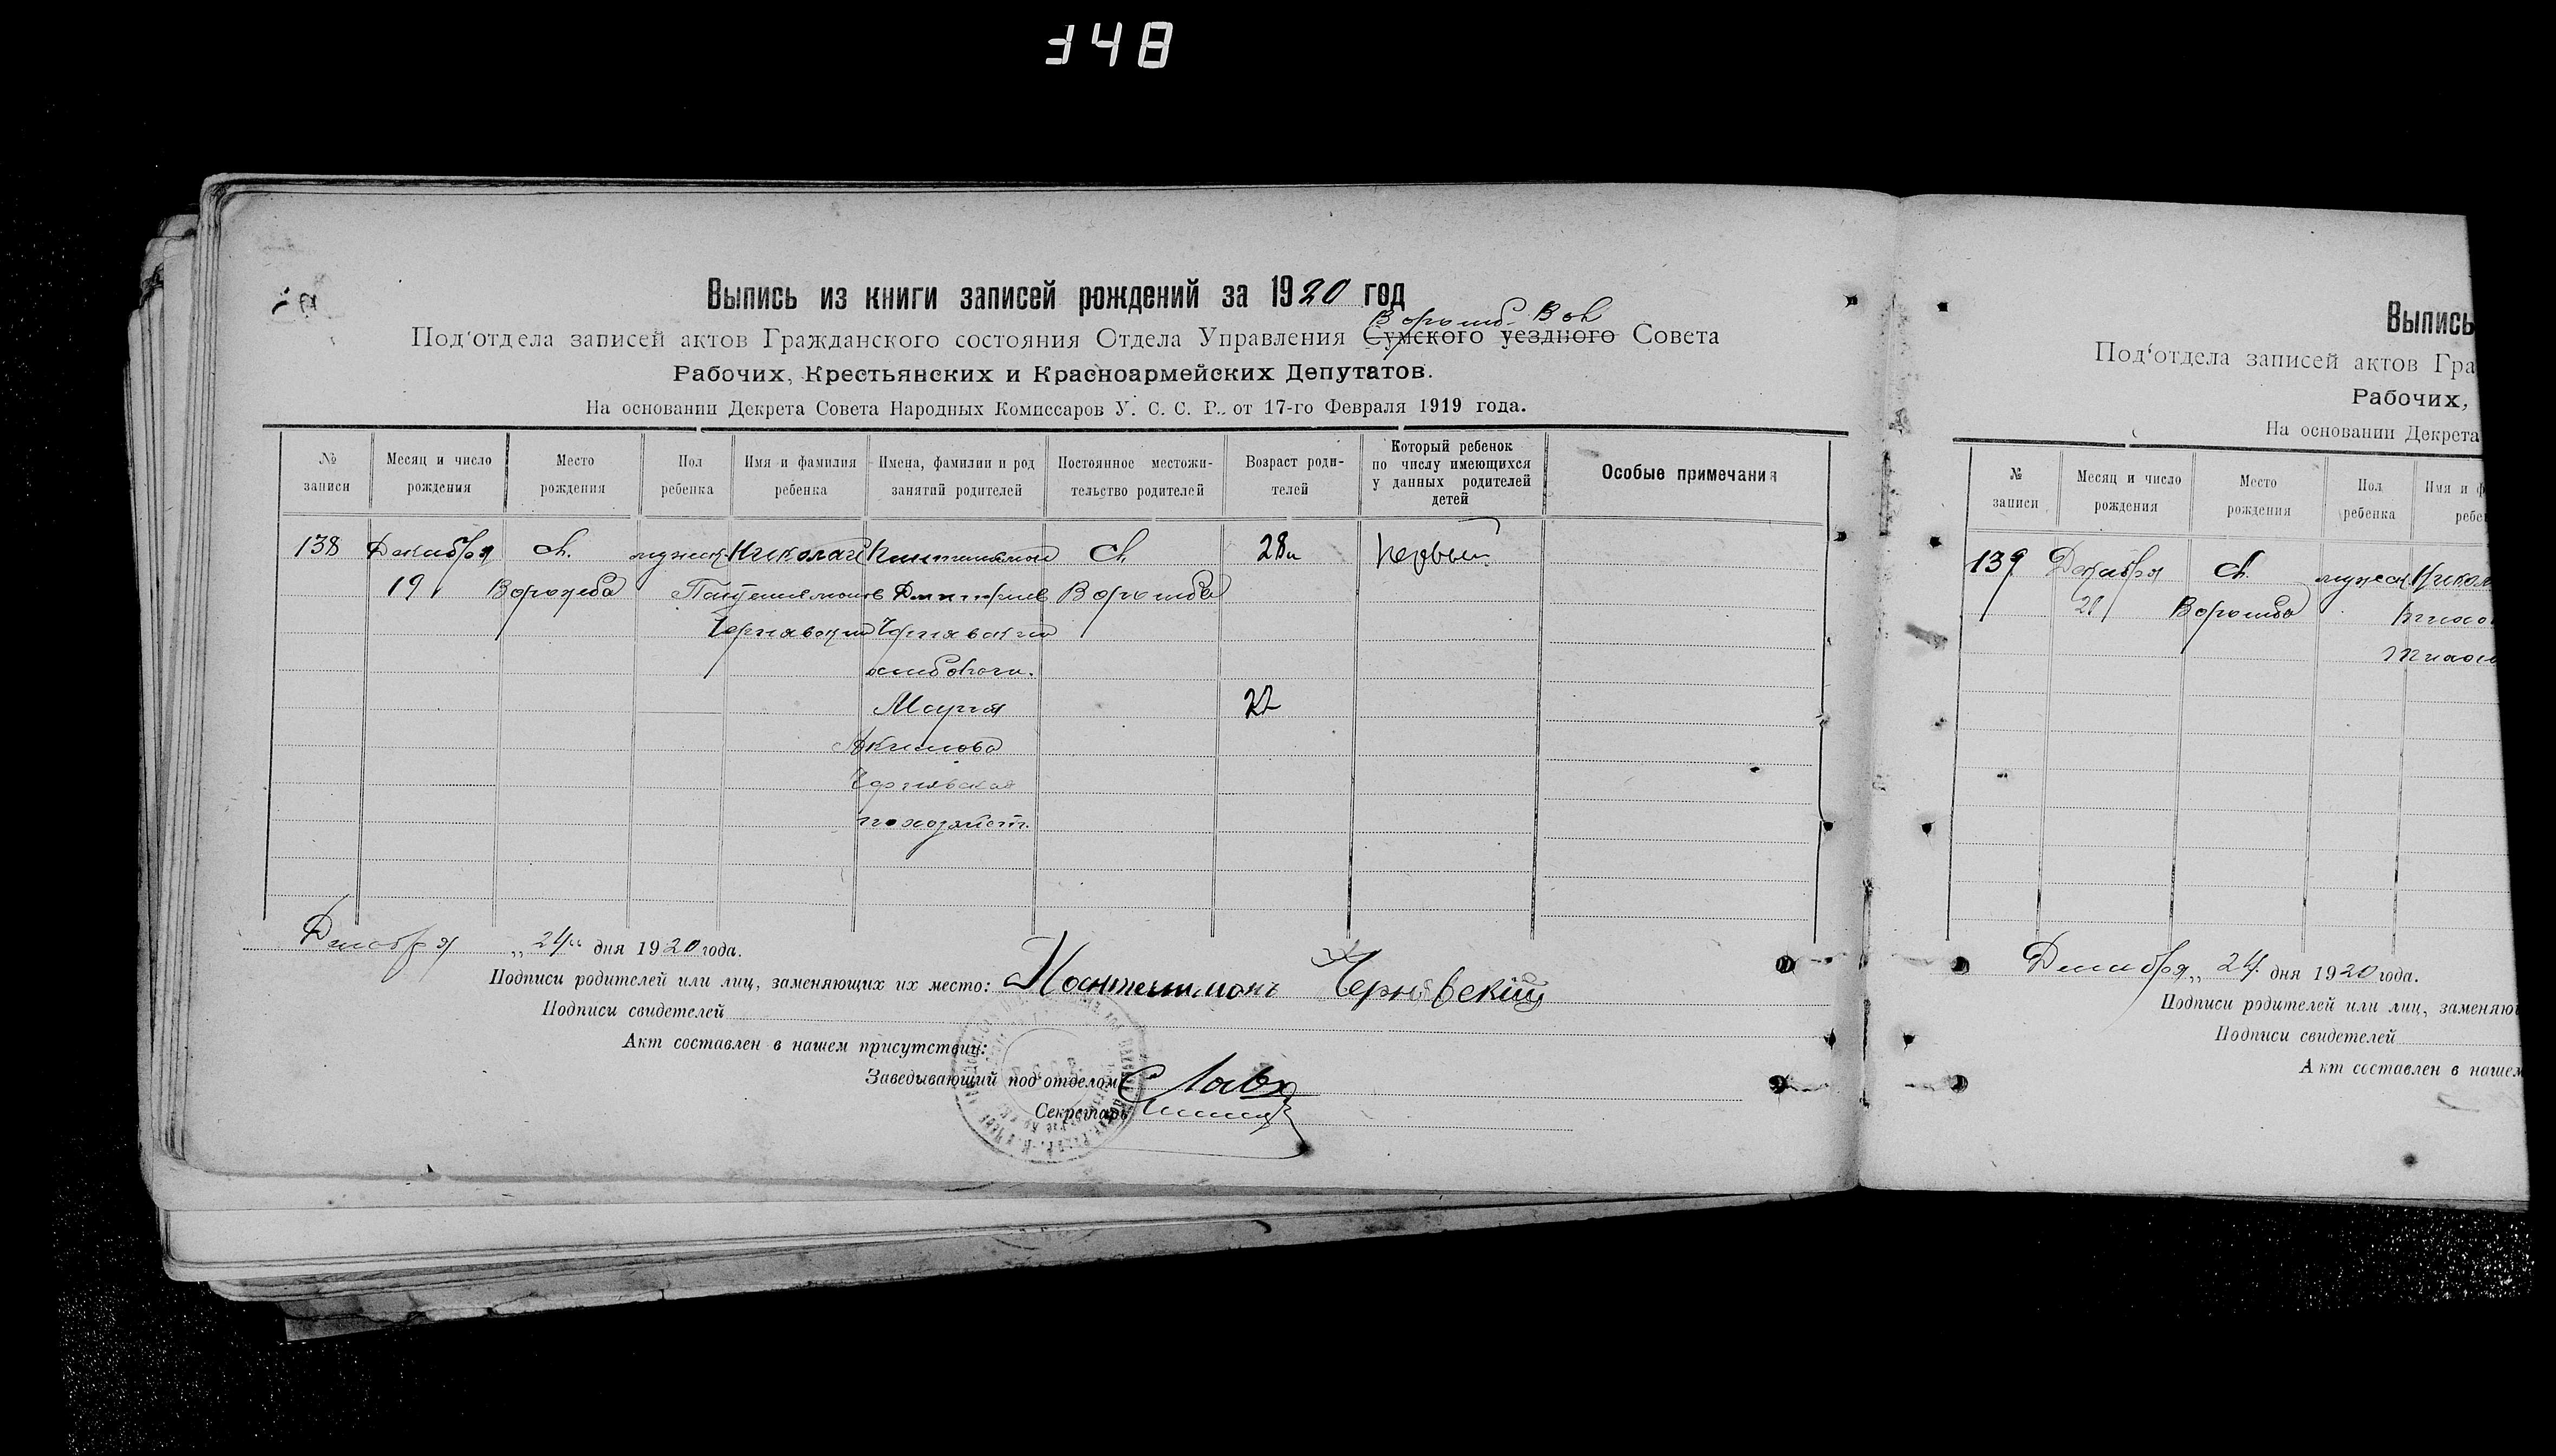 348
Выпись из книги записей рождений за 1920 год
Ворожб. Вол
Под'отдела записей актов Гражданского состояния Отдела Управления Сумского уездного Совета
Рабочих, Крестьянских и Красноармейских Депутатов.
На основании Декрета Совета Народных Комиссаров У. С. С. Р. от 17-го Февраля 1919 года.
№ записи
Месяц и число рождения
Место рождения
Пол ребенка
Имя и фамилия ребенка
Имена, фамилии и род занятий родителей
Постоянное местожительство родителей
Возраст родителей
Который ребенок по числу имеющихся у данных родителей детей
Особые примечания
138 Декабря с. мужеск Николай Пантелимон с. 28 первый
19 Ворожба Пантелимонов Дмитриев Ворожба
Чернявский Чернявский
хлебопаш.
Мария 22
Акимова
Чернявская
по хозяйст.
Декабря „24“ дня 1920 года.
Подписи родителей или лиц, заменяющих их место: Пантелимонъ Чернявский
Подписи свидетелей
Акт составлен в нашем присутствии:
Заведывающий под'отделом
Секретарь
Выпись
Под'отдела записей актов Гра
Рабочих,
На основании Декрета
№ записи
Месяц и число рождения
Место рождения
Пол ребенка
Имя и ф
ребе
139 Декабря с. мужеск Никол
20 Ворожба
Декабря „24 дня 1920 года.
Подписи родителей или лиц, заменяю
Подписи свидетелей
Акт составлен в нашем